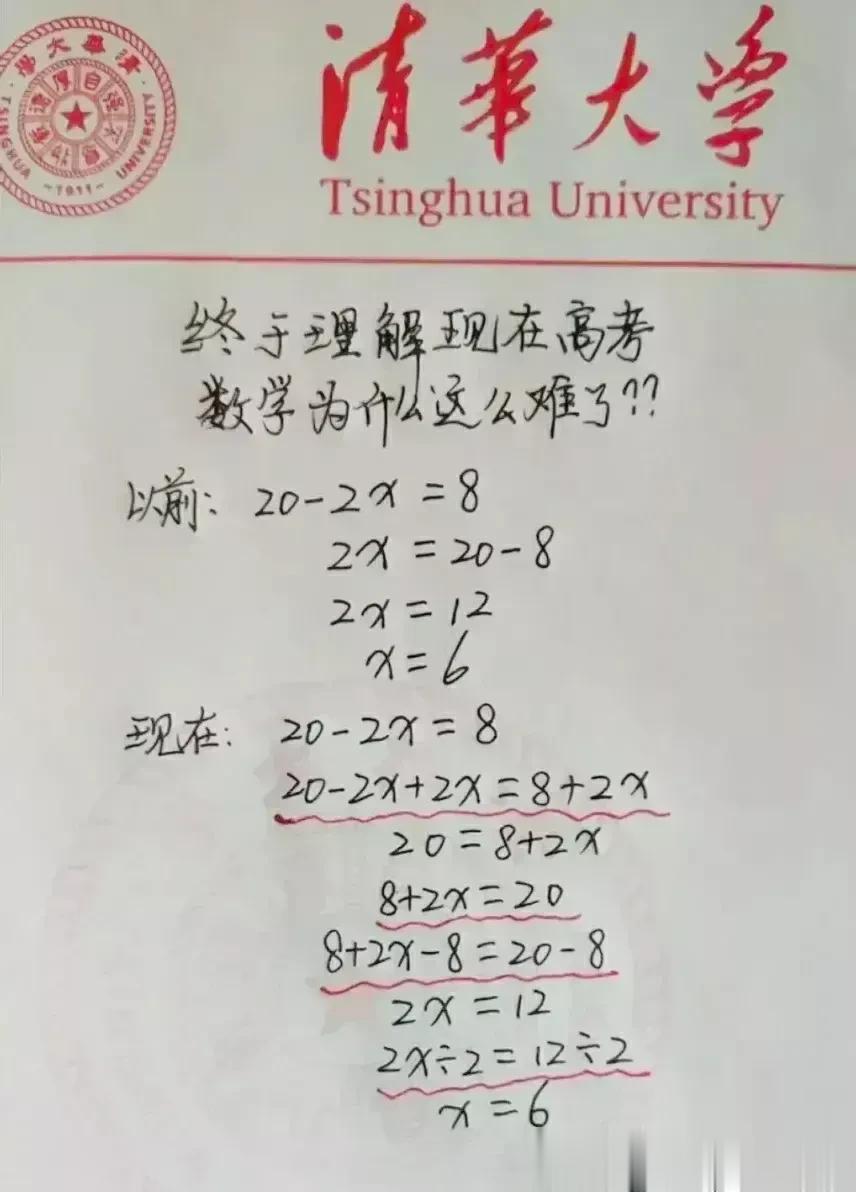 清華大学
Tsinghua University
清華大學
TSINGHUA UNIVERSITY
-1911-
自强不
厚
终于理解现在高考
数学为什么这么难了??
以前: 20-2x=8
2x=20-8
2x=12
x=6
现在: 20-2x=8
20-2x+2x=8+2x
20=8+2x
8+2x=20
8+2x-8=20-8
2x=12
2x÷2=12÷2
x=6